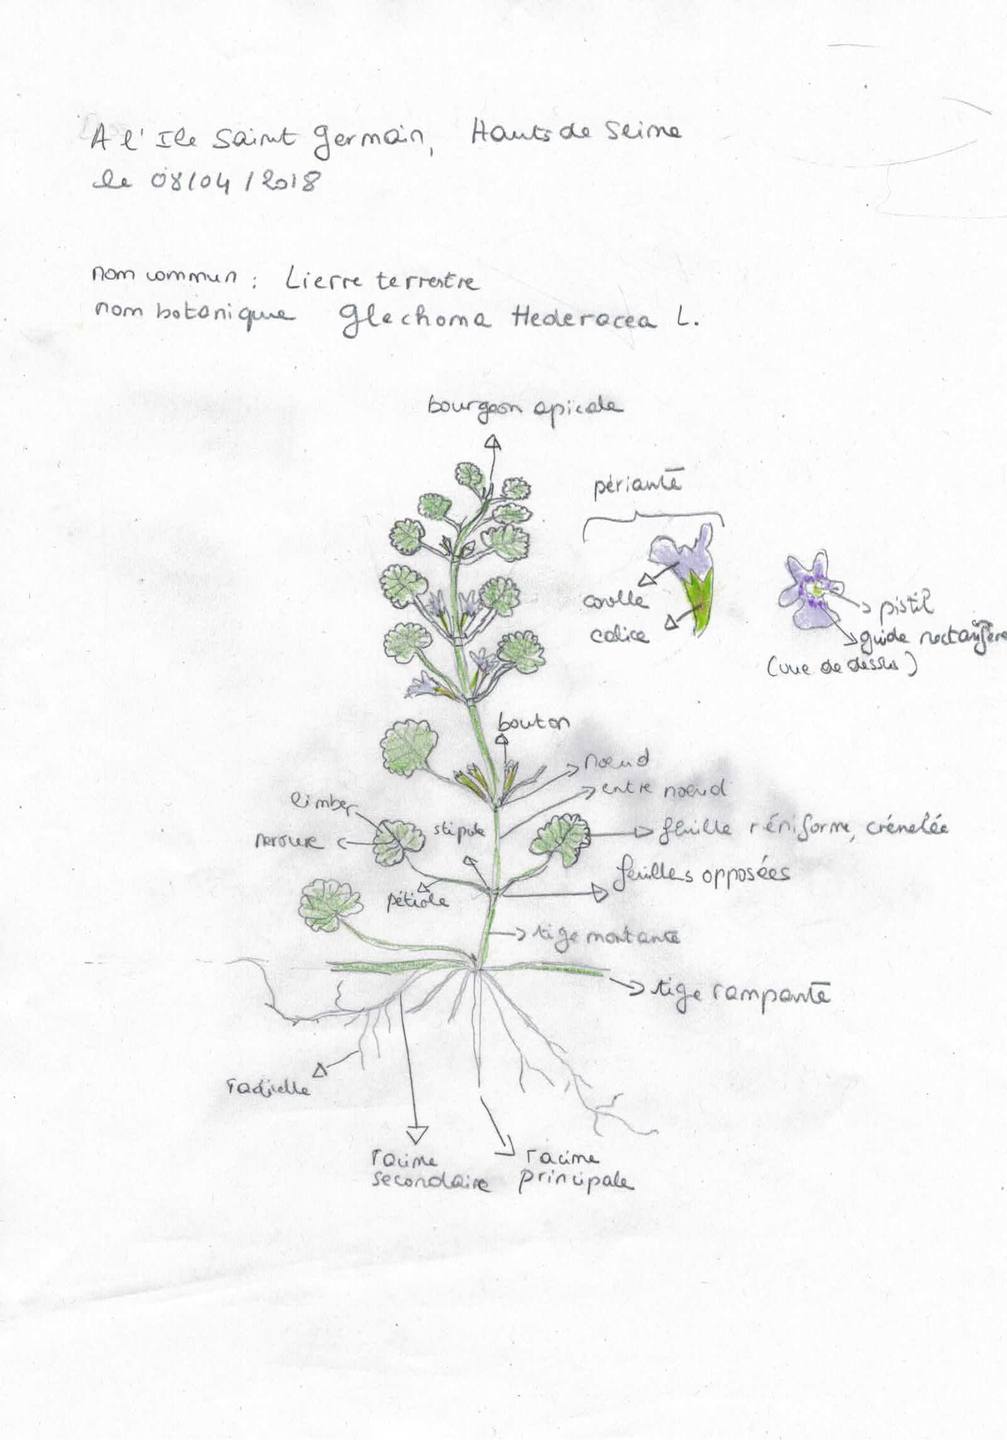 A l' Ile Saint Germain, Hauts de Seine
le 08/04/2018
nom commun : Lierre terrestre
nom botanique Glechoma Hederacea L.
bourgeon apicale
périante
corolle
calice
pistil
guide nectarifère
(vue de dessus)
bouton
noeud
entre noeud
limbe
nervure
stipule
feuille réniforme, crénelée
feuilles opposées
pétiole
tige montante
tige rampante
radicelle
racine
secondaire
racine
principale